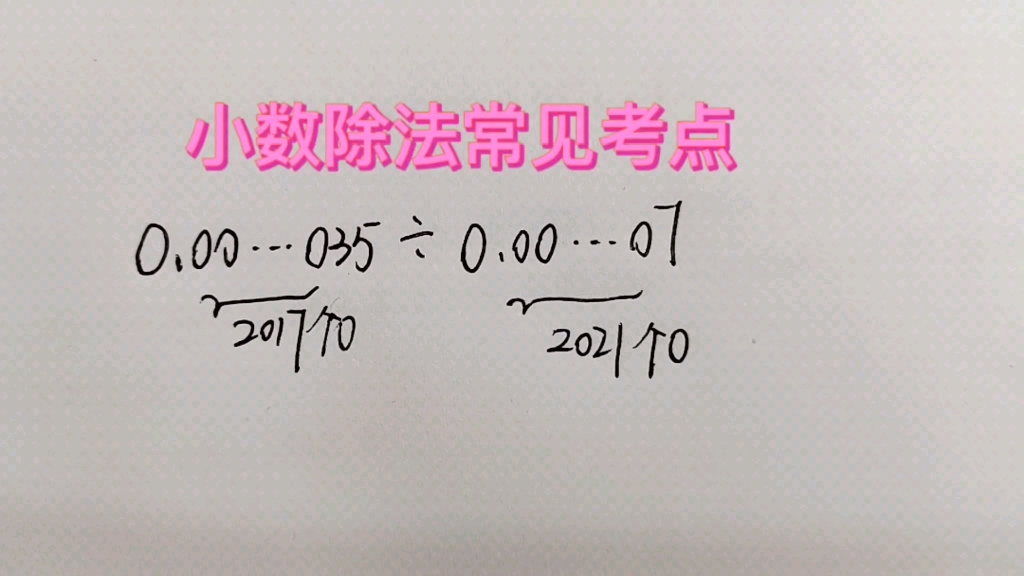 小数除法常见考点
0.00…035÷0.00…07
2017个0 2021个0